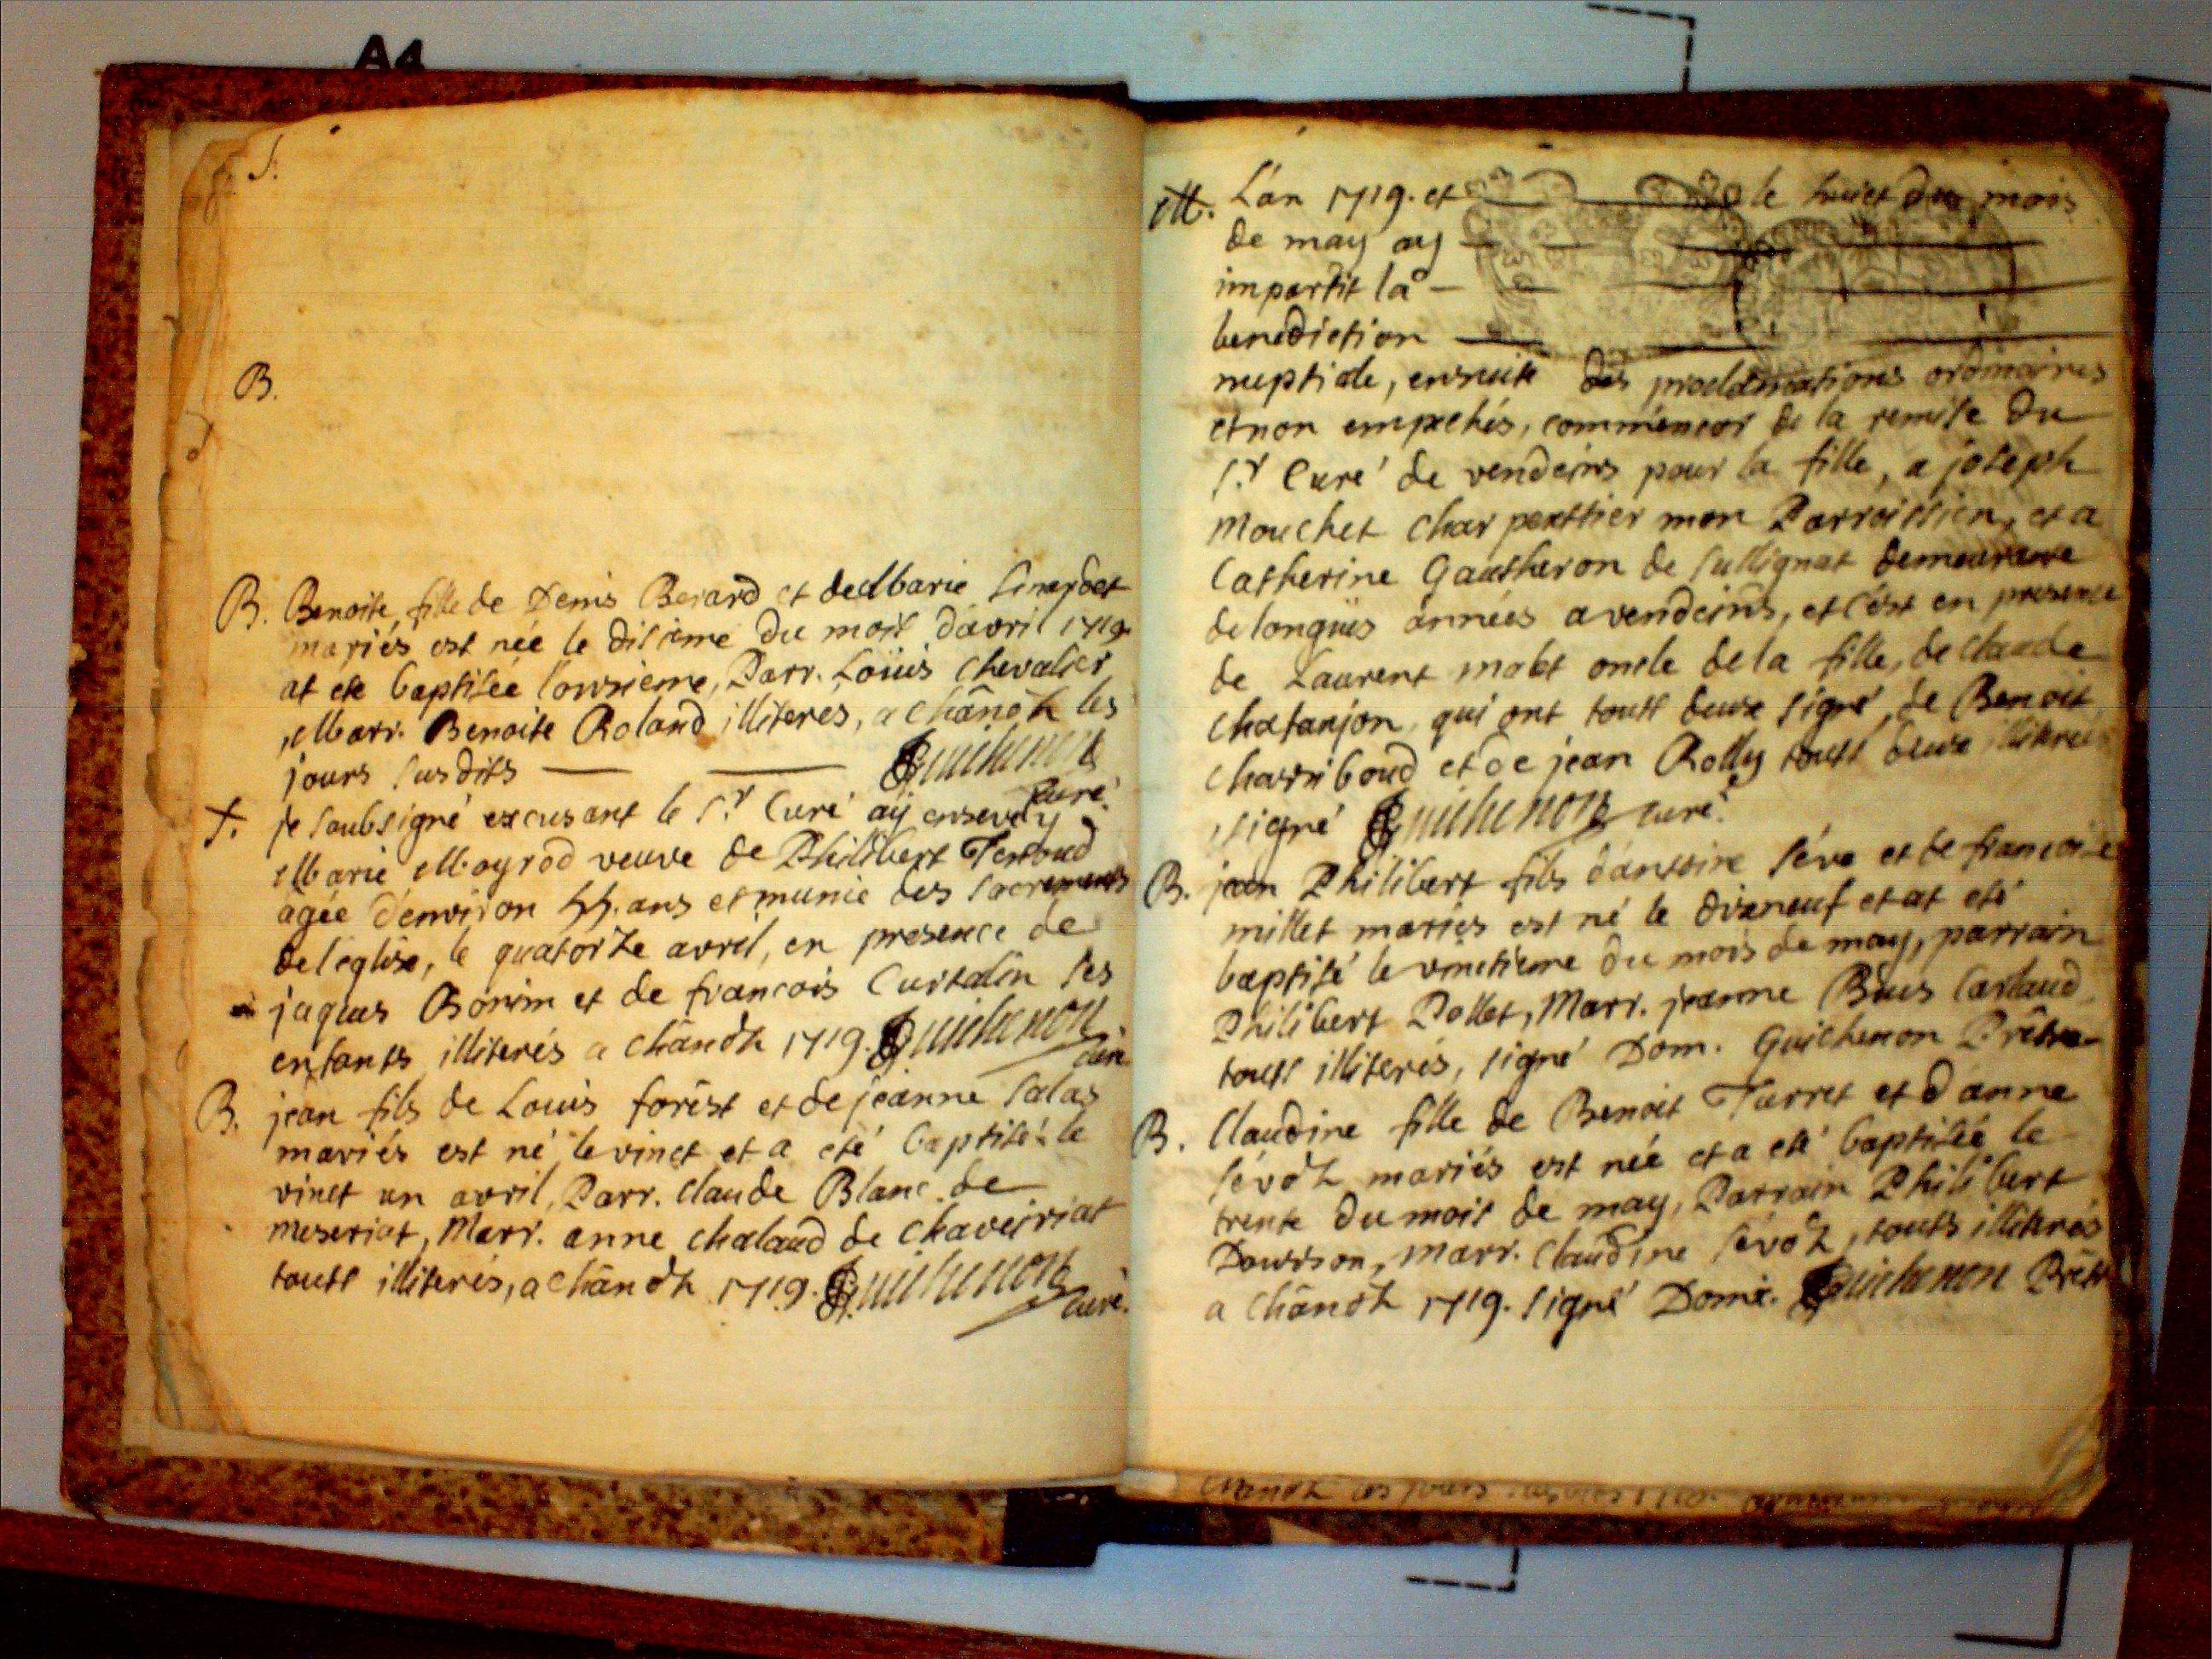 A4
B.
B. Benoite, fille de Denis Berard et de Marie
mariés est née le disieme du mois d'avril 1719
at ete baptisée l'onsieme, Parr. Loüis Chevalier
Marr. Benoite Roland illiterés, a Chãnoz les
jours susdits Guichenon
curé.
†. je soubsigné excusant le Sr. Curé aÿ ensevely
Marie Moyrod veuve de Philibert Tenoud
agée d'environ 55. ans et munie des sacrements
de l'église, le quatorze avril, en presence de
jaques Bonin et de francois Curtalin ses
enfants illiterés a Chãnoz 1719. Guichenon
curé.
B. jean fils de Louis forêst et de jeanne Salas
mariés est né le vinct et a eté baptisé le
vinct un avril, Parr. Claude Blanc de
meseriat, Marr. anne Chalaud de Chaveiriat
touts illiterés, a Chãnoz 1719. Guichenon
curé.
M. L'an 1719. et le huict du mois
de may ay
impartit la
benediction
nuptiale, ensuite des proclamations ordinaires
et non empechés, comme de la remise du
Sr. Curé de vendeins pour la fille, a joseph
Mouchet Charpenttier mon Parroissien, et a
Catherine Gautheron de Sullignat demeurante
de longues années a vendeins, et c'est en presence
de Laurent mabt oncle de la fille, de Claude
Chatanjon, qui ont touts deux signé, de Benoit
Charriboud et de jean Rolly touts deux illiterés
signé Guichenon curé.
B. jean Philibert fils d'anttoine Séve et de francoise
millet mariés est né le dixneuf et at eté
baptisé le vinctieme du mois de may, parrain
Philibert Pollet, Marr. jeanne Carlaud
touts illiterés, signé Dom. Guichenon Prêtre
B. Claudine fille de Benoit Turret et d'anne
Sévoz mariés est née et a eté baptisée le
trente du mois de may, Parrain Philibert
Marr. Claudine Sévoz, touts illiterés
a Chãnoz 1719. signé Domi. Guichenon Prêtr
Chanoz les jours